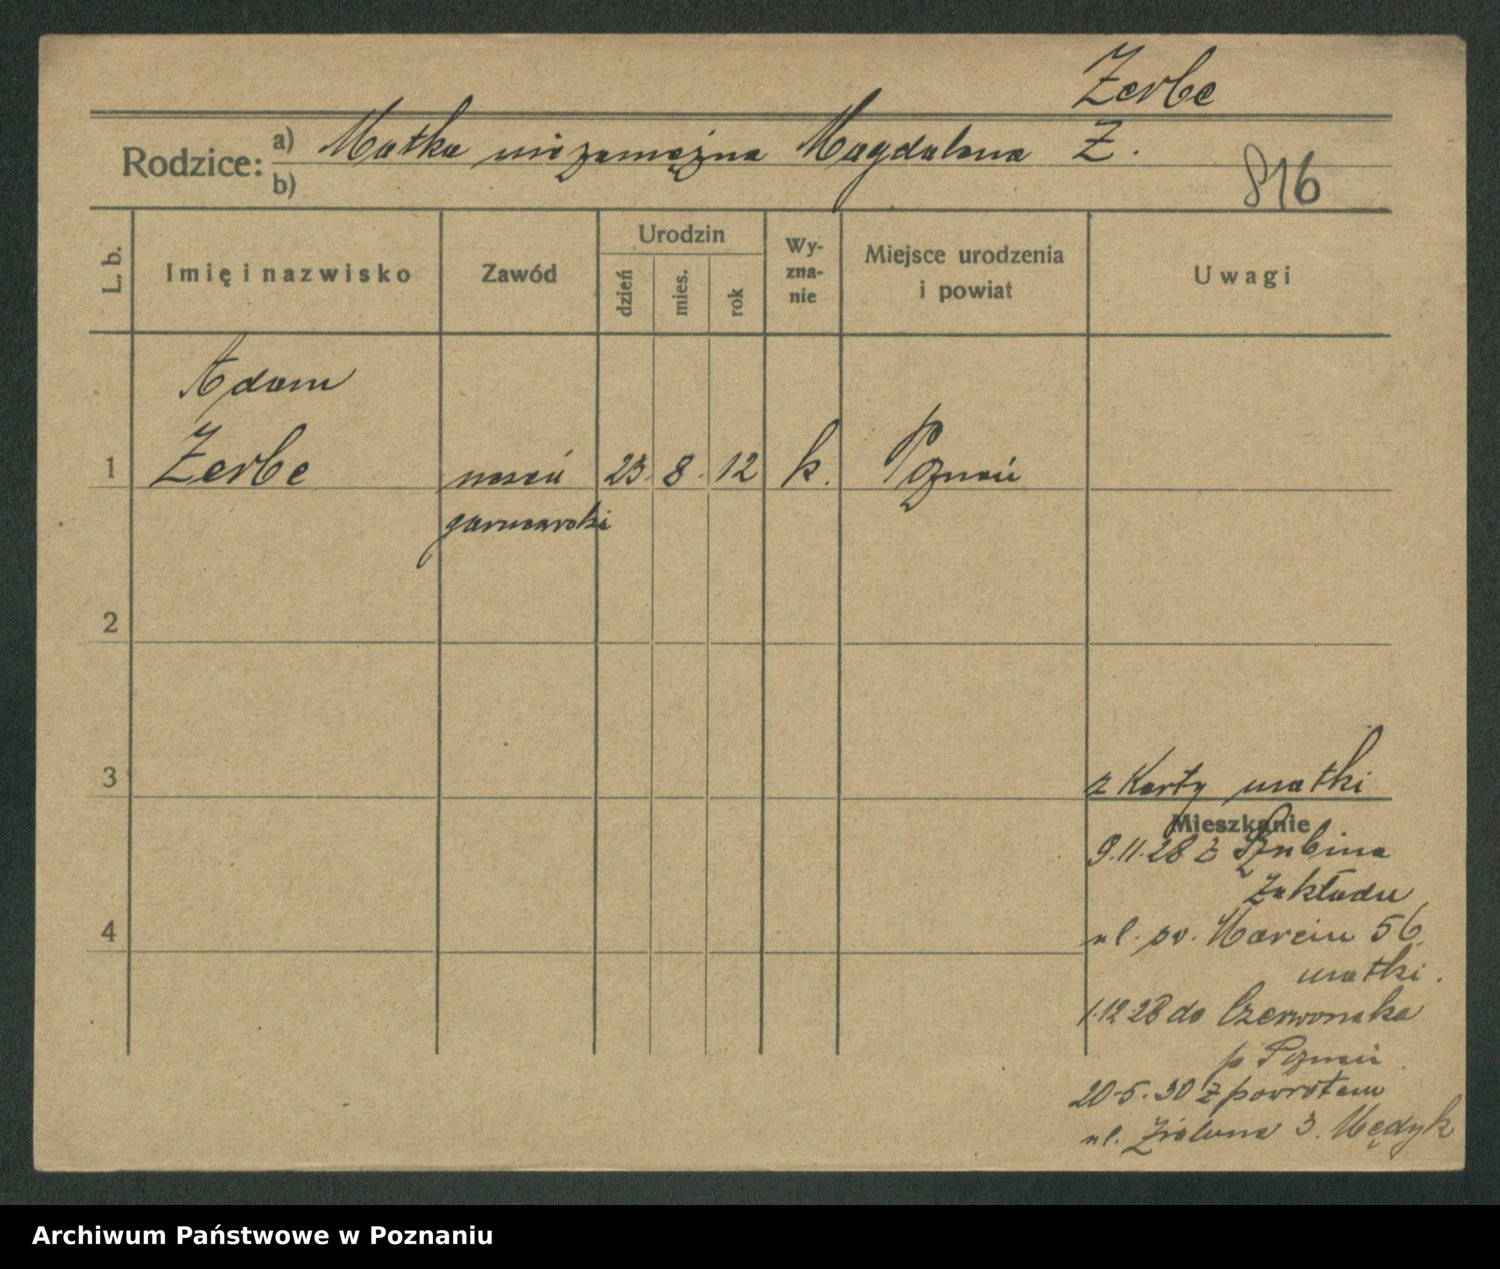 Zerbe
Rodzice: a) Matka niezamężna Magdalena Z.
b)
816
L. b.
Imię i nazwisko
Zawód
Urodzin
dzień
mies.
rok
Wy-
zna-
nie
Miejsce urodzenia
i powiat
Uwagi
Adam
1 Zerbe uczeń 23. 8. 12 k. Poznań
garncarski
2
3
z Karty matki
Mieszkanie
9.11.28 z Szubina
Zakładu
4
ul. św. Marcin 56
matki.
1.12 28 do Czerwonaka
p Poznań
20.5.30 z powrotem
ul. Zielona 3. Mędyk
Archiwum Państwowe w Poznaniu